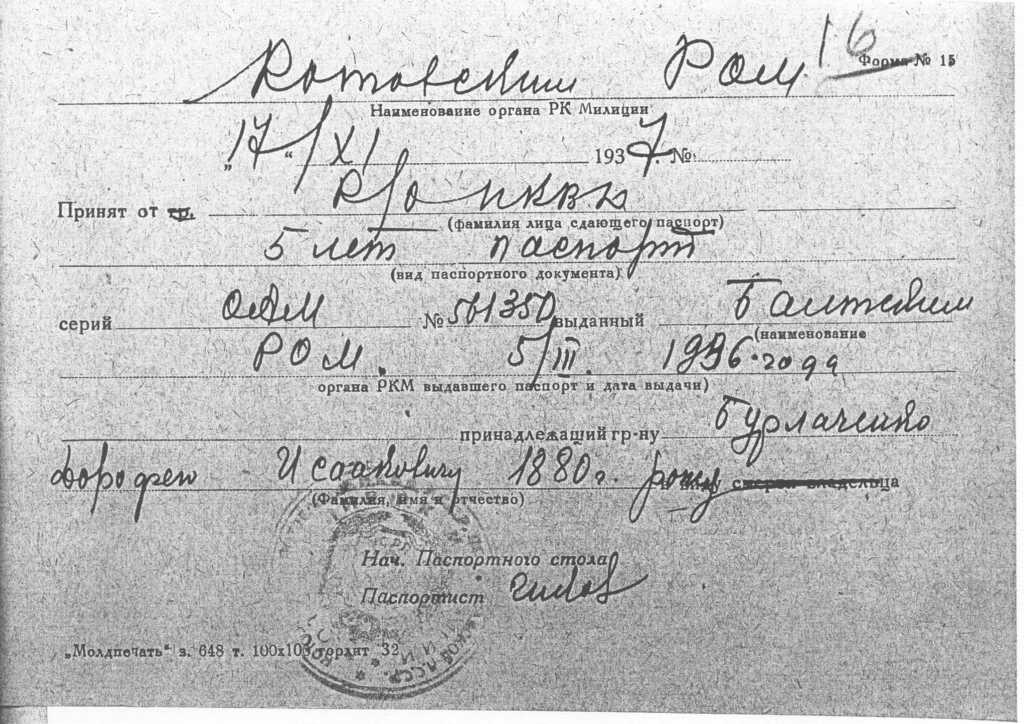 16
Форма № 15
Котовским РОМ.
Наименование органа РК Милиции
„17“/XI 1937. №
Принят от гр. Р/О НКВД
(фамилия лица сдающего паспорт)
5 лет паспорт
(вид паспортного документа)
серий ОАМ № 501350 выданный Балтским
(наименование
РОМ. 5/III. 1936 года
органа РКМ выдавшего паспорт и дата выдачи)
принадлежащий гр-ну Бурлаченко
Дорофею Исааковичу 1880 г. рожд смерти владельца
(Фамилия, имя и отчество)
Нач. Паспортного стола
Паспортист
„Молдпечать“ з. 648 т. 100х103 гордит 32